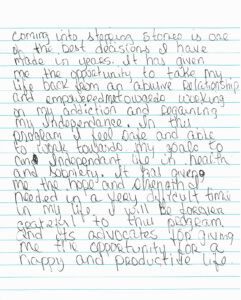 coming into stepping stones is one
of the best decisions I have
made in years. It has given
me the opportunity to take my
life back from an abusive relationship
and empowered me towards working
on my addiction and regaining
my independence. In this
program I feel safe and able
to work towards my goals to
an independent life in health
and sobriety. It has given
me the hope and strength I
needed in a very difficult time
in my life. I will be forever
grateful to this program
and its advocates for giving
me the opportunity for a
happy and productive life